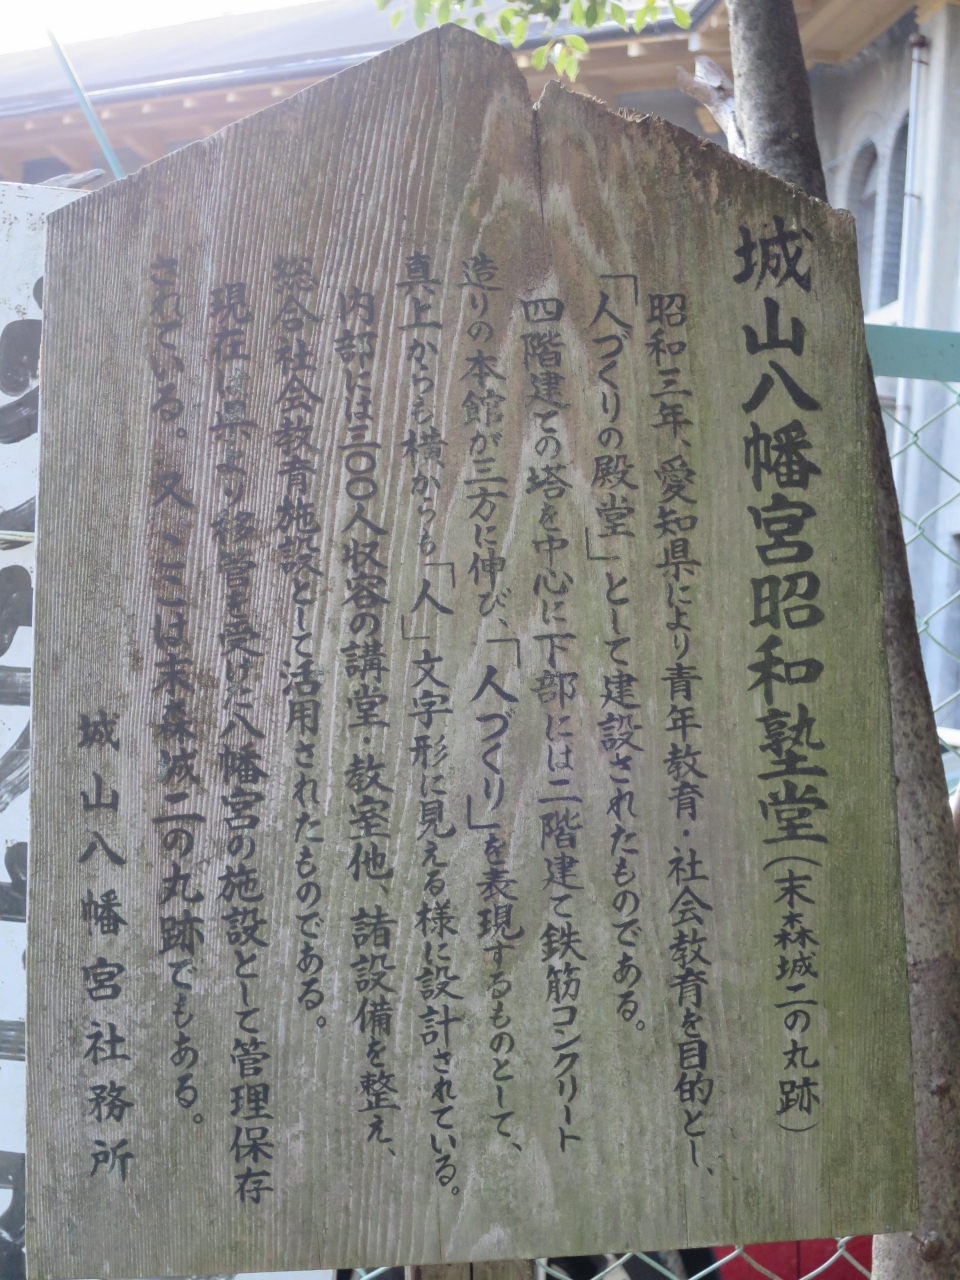 城山八幡宮昭和塾堂(末森城二の丸跡)
昭和三年、愛知県により青年教育・社会教育を目的とし、
「人づくりの殿堂」として建設されたものである。
四階建ての塔を中心に下部には二階建て鉄筋コンクリート
造りの本館が三方に伸び、「人づくり」を表現するものとして、
真上からも横からも「人」文字形に見える様に設計されている。
内部には三〇〇人収容の講堂・教室他、諸設備を整え、
総合社会教育施設として活用されたものである。
現在は県より移管を受けた八幡宮の施設として管理保存
されている。又、ここは末森城二の丸跡でもある。
城山八幡宮社務所